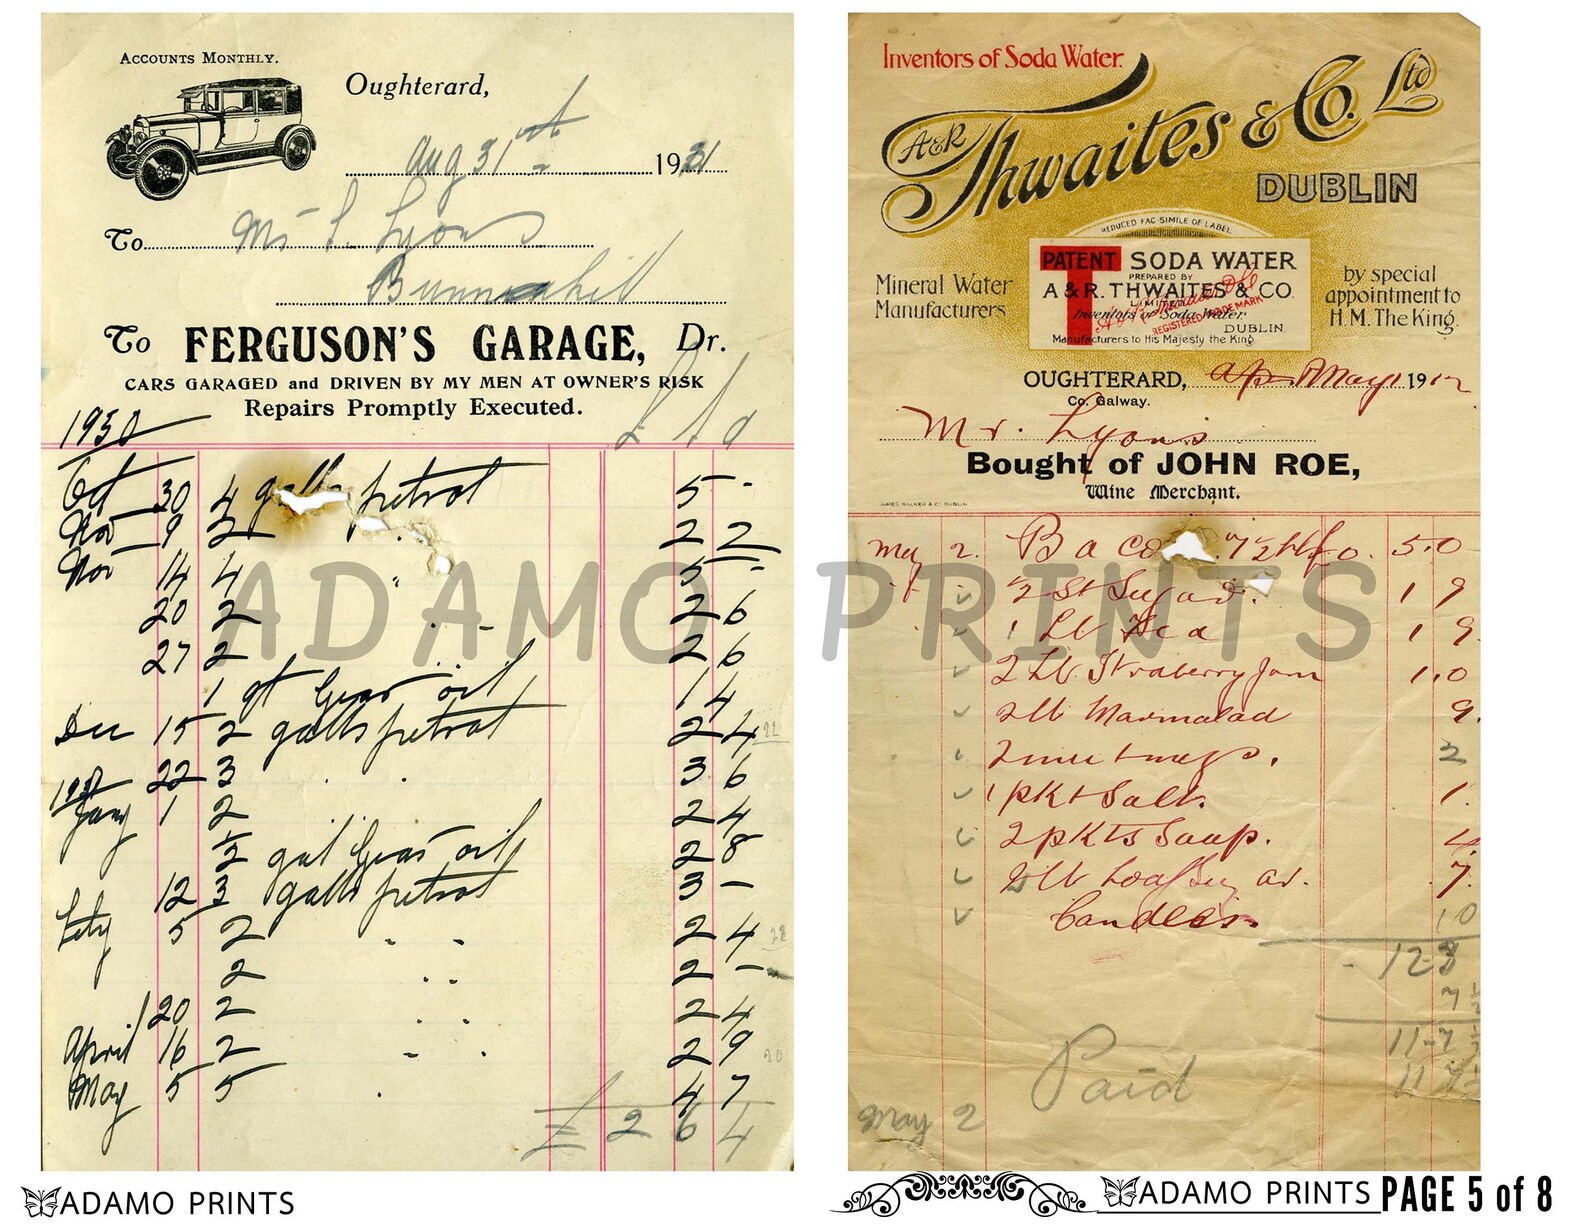 ACCOUNTS MONTHLY.
Oughterard,
Aug 31st 1931
To Mr L. Lyons
To FERGUSON'S GARAGE, Dr.
CARS GARAGED and DRIVEN BY MY MEN AT OWNER'S RISK
Repairs Promptly Executed.
1930 £ s d
Oct 30 4 galls petrol 5 -
Nov 9 2 " 2 2
Nov 14 4 " 5 -
20 2 " - 2 6
27 2 2 6
1 qt Gear oil 1 4
Dec 15 2 galls petrol 2 4
22 3 " " 3 6
1931
Jany 1 2 2 4
1/2 gal Gear oil 2 8
12 3 galls petrol 3 -
Feby 5 2 " " 2 4
2 " " 2 -
20 2 " " 2 4
April 16 2 " " 2 9
May 5 5 " 4 7
£ 2 6 4
Inventors of Soda Water.
A & R Thwaites & Co. Ltd
DUBLIN
REDUCED FAC-SIMILE OF LABEL
Mineral Water Manufacturers
PATENT SODA WATER
PREPARED BY
A & R. THWAITES & CO.
LIMITED
Inventors of Soda Water
REGISTERED TRADE MARK
DUBLIN.
Manufacturers to His Majesty the King.
by special appointment to H.M. The King.
OUGHTERARD, May 1 1912
Co. Galway.
Mr. Lyons
Bought of JOHN ROE,
Wine Merchant.
JAMES WALKER & Co DUBLIN
May 2. Baco 5.0
1/2 St Sugar. 1 9
1 Lb Tea 1 9.
2 Lb Straberry Jam 1.0
2 lb Marmalad 9.
2 nutmegs. 2
1 pkt Salt. 1.
2 pkts Soap. 4
2 lb Loaf Sugar. 7.
Candles. 10
12-8
7 1/2
11-7 1/2
Paid
May 2
ADAMO PRINTS
ADAMO PRINTS
ADAMO PRINTS PAGE 5 of 8